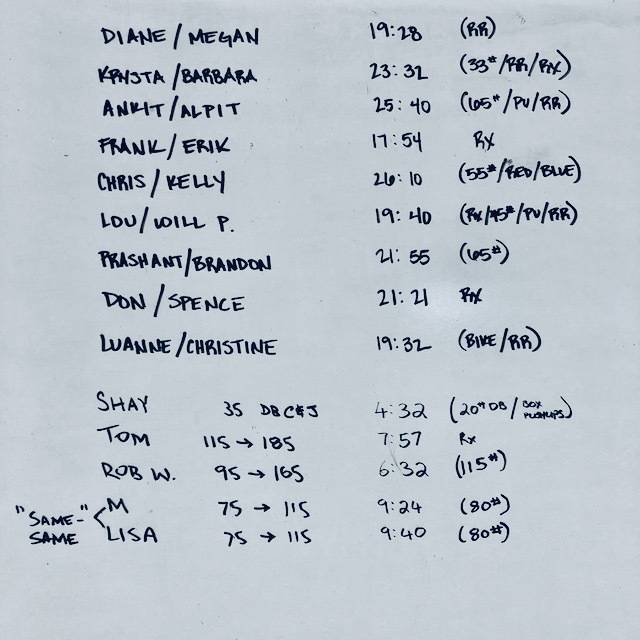 DIANE/MEGAN 19:28 (RR)
KRYSTA/BARBARA 23:32 (33#/RR/RX)
ANKIT/ALPIT 25:40 (65#/PU/RR)
FRANK/ERIK 17:54 RX
CHRIS/KELLY 26:10 (55#/RED/BLUE)
LOU/WILL P. 19:40 (RX/95#/PU/RR)
PRASHANT/BRANDON 21:55 (65#)
DON/SPENCE 21:21 RX
LUANNE/CHRISTINE 19:32 (BIKE/RR)
SHAY 35 DB C&J 4:32 (20# DB/BOX PUSHUPS)
TOM 115 → 185 7:57 Rx
ROB W. 95 → 165 6:32 (115#)
"SAME-SAME" < M 75 → 115 9:24 (80#)
LISA 75 → 115 9:40 (80#)